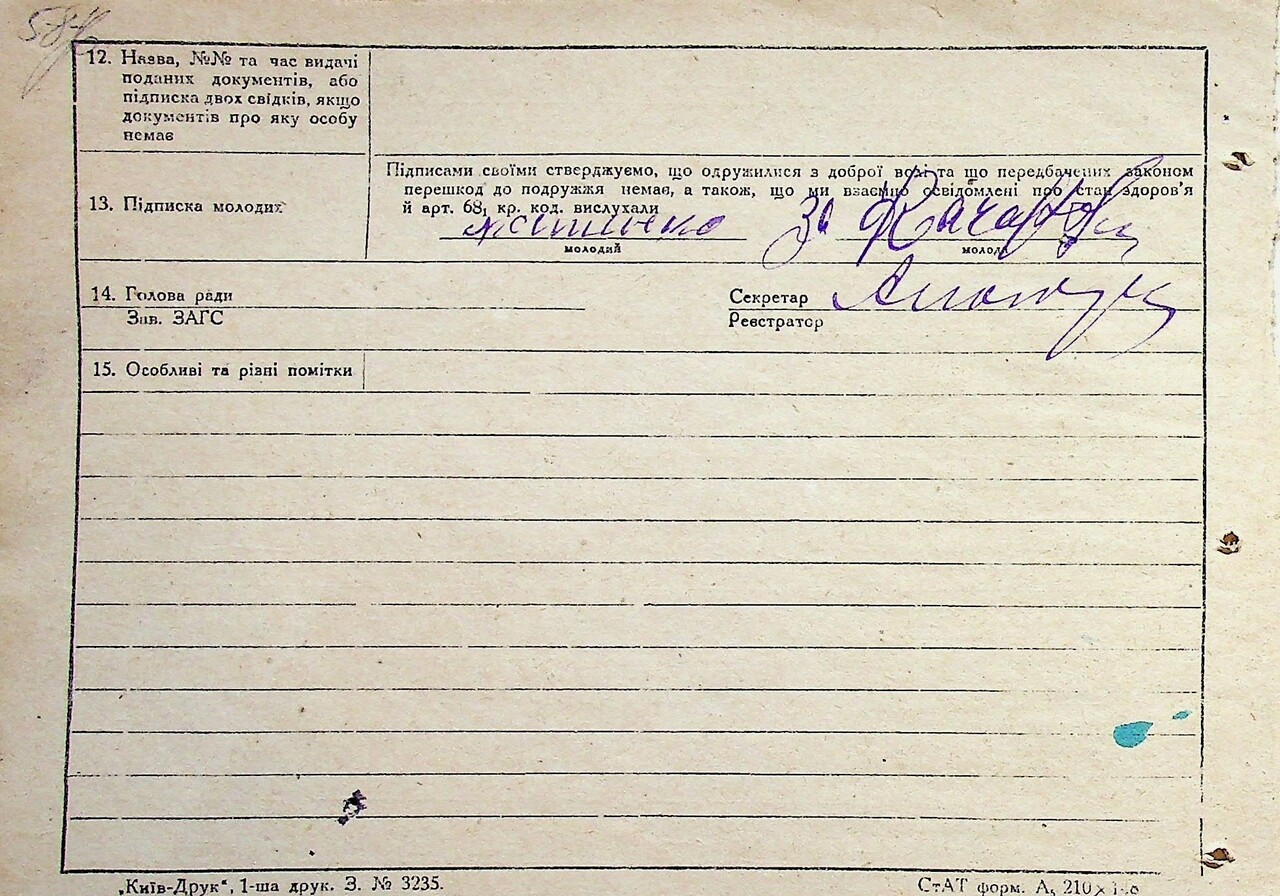 12. Назва, №№ та час видачі
поданих документів, або
підписка двох свідків, якщо
документів про яку особу
немає
13. Підписка молодих
Підписами своїми стверджуємо, що одружилися з доброї волі та що передбачених законом
перешкод до подружжя немає, а також, що ми взаємно освідомлені про стан здоров'я
й арт. 68₁ кр. код. вислухали
За
молодий
молода
14. Голова ради
Секретар
Зав. ЗАГС
Реєстратор
15. Особливі та різні помітки
„Київ-Друк“, 1-ша друк. З. № 3235.
СтАТ форм. А₅ 210×